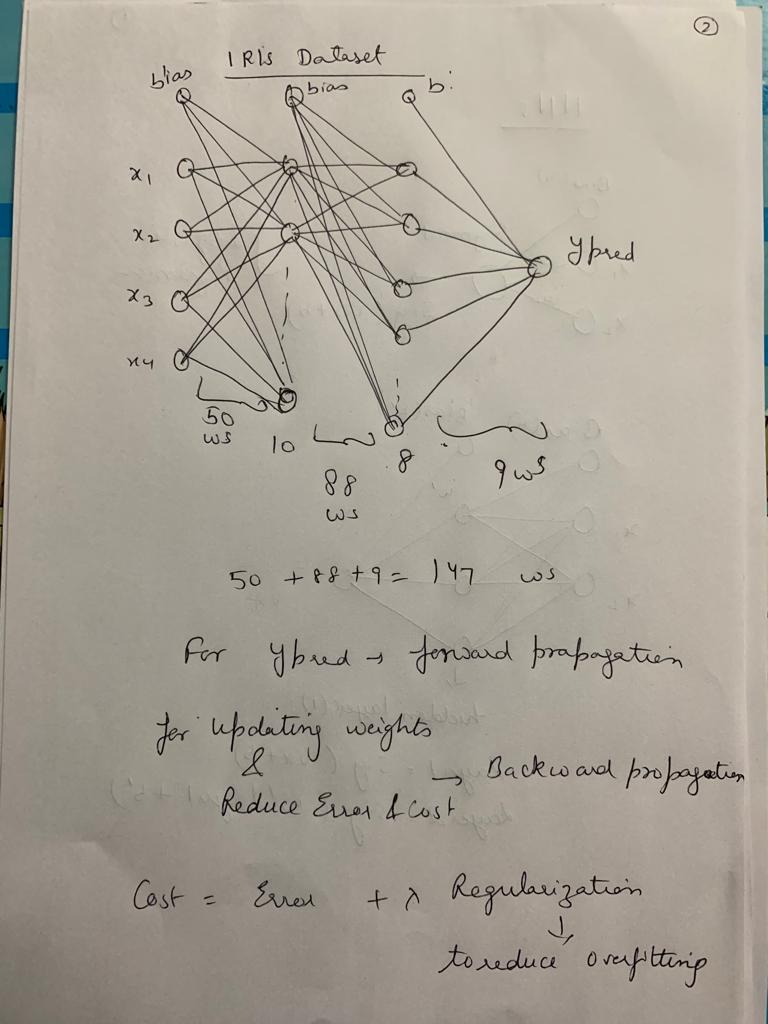 2
IRIS Dataset
bias
bias
b.
x1
x2
x3
x4
ypred
50
ws
10
88
ws
8
9 ws
50 + 88 + 9 = 147 ws
For ypred → forward propagation
for updating weights
&
→ Backward propagation
Reduce Error & Cost
Cost = Error + λ Regularization
↓
to reduce overfitting